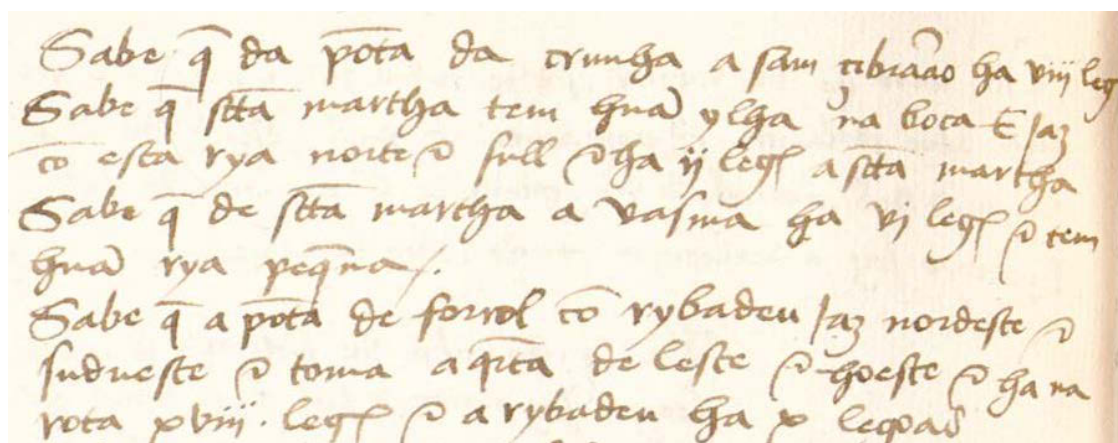 Sabe q̃ da põta da crunha a sam cibrãao ha viij leg
Sabe q̃ sctã martha tem huã ylha na boca E Jaz
cõ esta rya norte e sull e ha ij leg a sctã martha
Sabe q̃ de sctã martha a vasma ha vj leg e tem
huã rya peq̃na /.
Sabe q̃ a põta de forrol cõ rybadeu Jaz nordeste e
sudueste e toma a qr̃ta de leste e hoeste e ha na
rota xviij . leg e a rybadeu ha x legoas